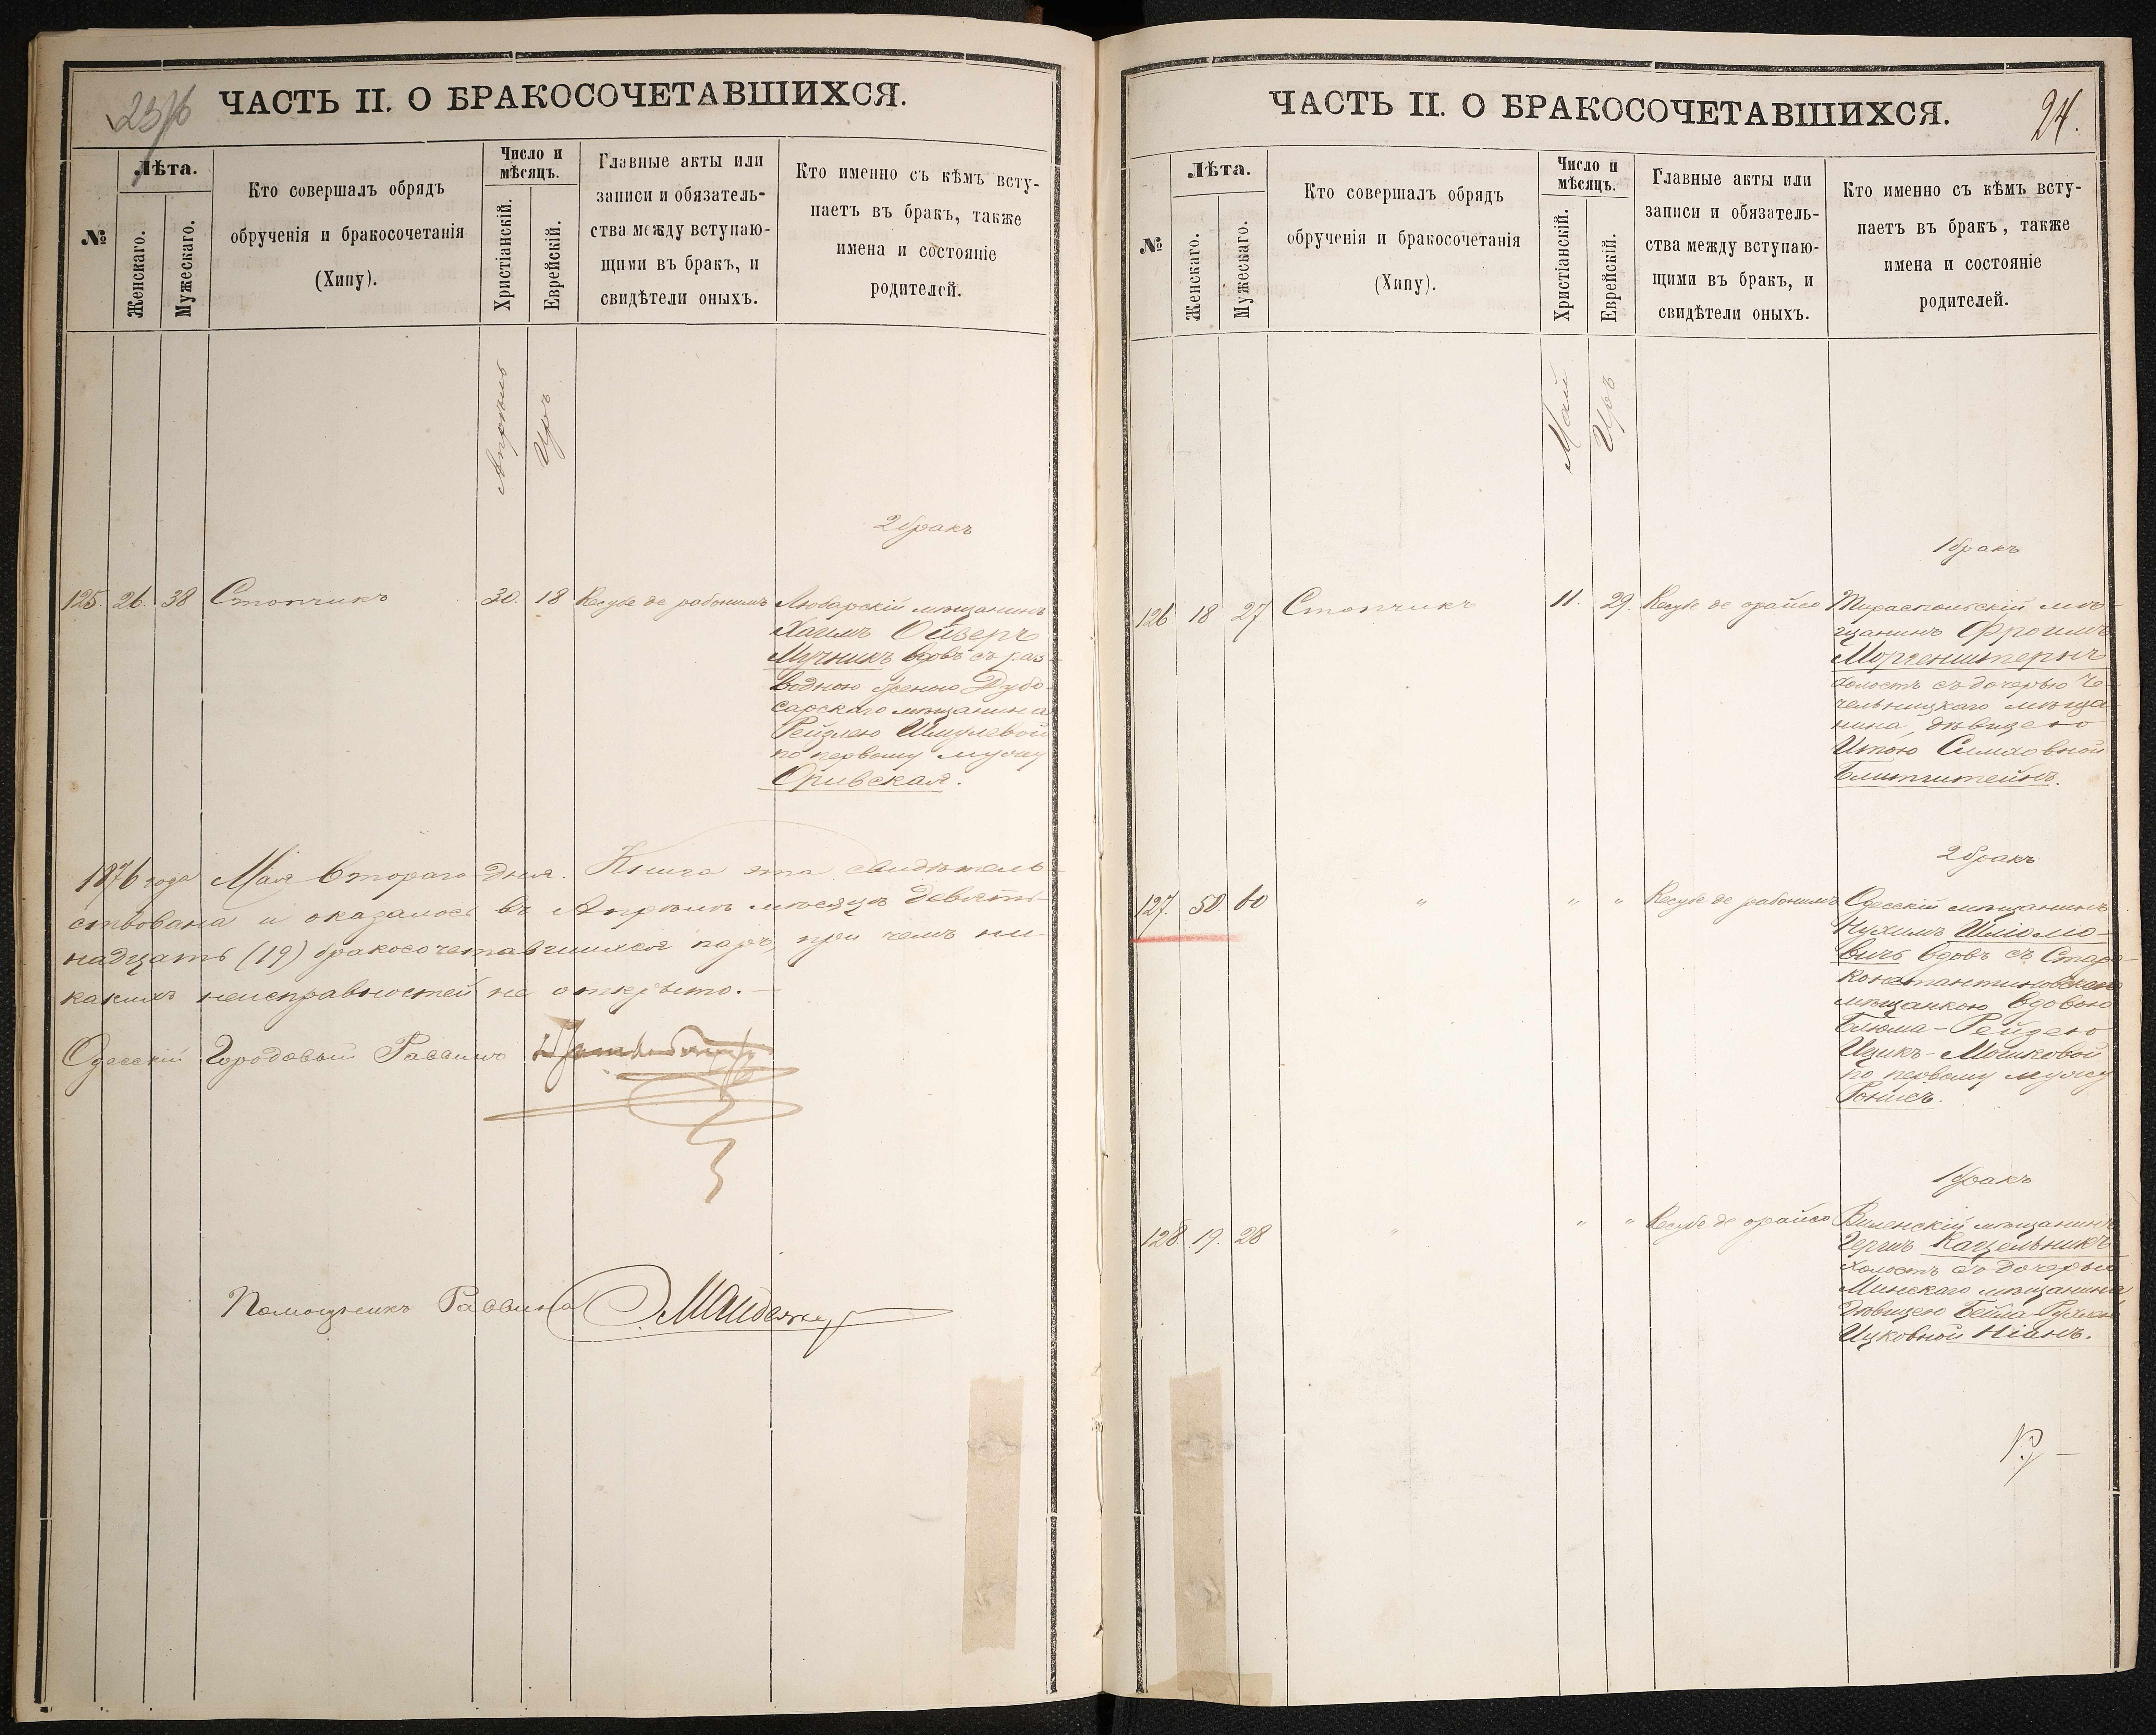 ЧАСТЬ II. О БРАКОСОЧЕТАВШИХСЯ.
№
Лѣта.
Женскаго.
Мужескаго.
Кто совершалъ обрядъ
обрученія и бракосочетанія
(Хипу).
Число и
мѣсяцъ.
Христіанскій.
Еврейскій.
Главные акты или
записи и обязатель-
ства между вступаю-
щими въ бракъ, и
свидѣтели оныхъ.
Кто именно съ кѣмъ всту-
паетъ въ бракъ, также
имена и состояніе
родителей.
Апрѣль
Іръ
2 бракъ
125. 26. 38 Стопчикъ 30. 18 Кесубе де рабонимъ Любарскій мѣщанинъ
Хаимъ Ойзеръ
Мучникъ вдовъ съ раз-
водною женою Дубо-
сарскаго мѣщанина
Рейзлею Шмулевой
по первому мужу
Оривская.
1876 года Мая втораго дня. Книга эта свидѣтель-
ствована и оказалось въ Апрѣлѣ мѣсяцѣ девят-
надцать (19) бракосочетавшихся паръ, при чемъ ни-
какихъ неисправностей не открыто. —
Одесскій Городовый Раввинъ
Помощникъ Раввина
ЧАСТЬ II. О БРАКОСОЧЕТАВШИХСЯ.
24.
№
Лѣта.
Женскаго.
Мужескаго.
Кто совершалъ обрядъ
обрученія и бракосочетанія
(Хипу).
Число и
мѣсяцъ.
Христіанскій.
Еврейскій.
Главные акты или
записи и обязатель-
ства между вступаю-
щими въ бракъ, и
свидѣтели оныхъ.
Кто именно съ кѣмъ всту-
паетъ въ бракъ, также
имена и состояніе
родителей.
Май
Іръ
1 бракъ
126 18 27 Стопчикъ 11. 29. Кесубе де орайсо Тираспольскій мѣ-
щанинъ Фроимъ
Моргенштернъ
холостъ съ дочерью Че-
чельницкаго мѣща-
нина, дѣвицею
Итою Симховной
Блитштейнъ.
2 бракъ
127. 50. 60 " " " Кесубе де рабонимъ Одесскій мѣщанинъ
Нухимъ Шліомо-
вичъ вдовъ съ Старо-
константиновскою
мѣщанкою вдовою
Блюма-Рейзею
Ицикъ-Мошковой
по первому мужу
Ронисъ.
1 бракъ
128. 19. 28 " " " Кесубе де орайсо Виленскій мѣщанинъ
Гершъ Кацельникъ
холостъ съ дочерью
Минскаго мѣщанина
дѣвицею Бейла-
Ицковной Ніанъ.